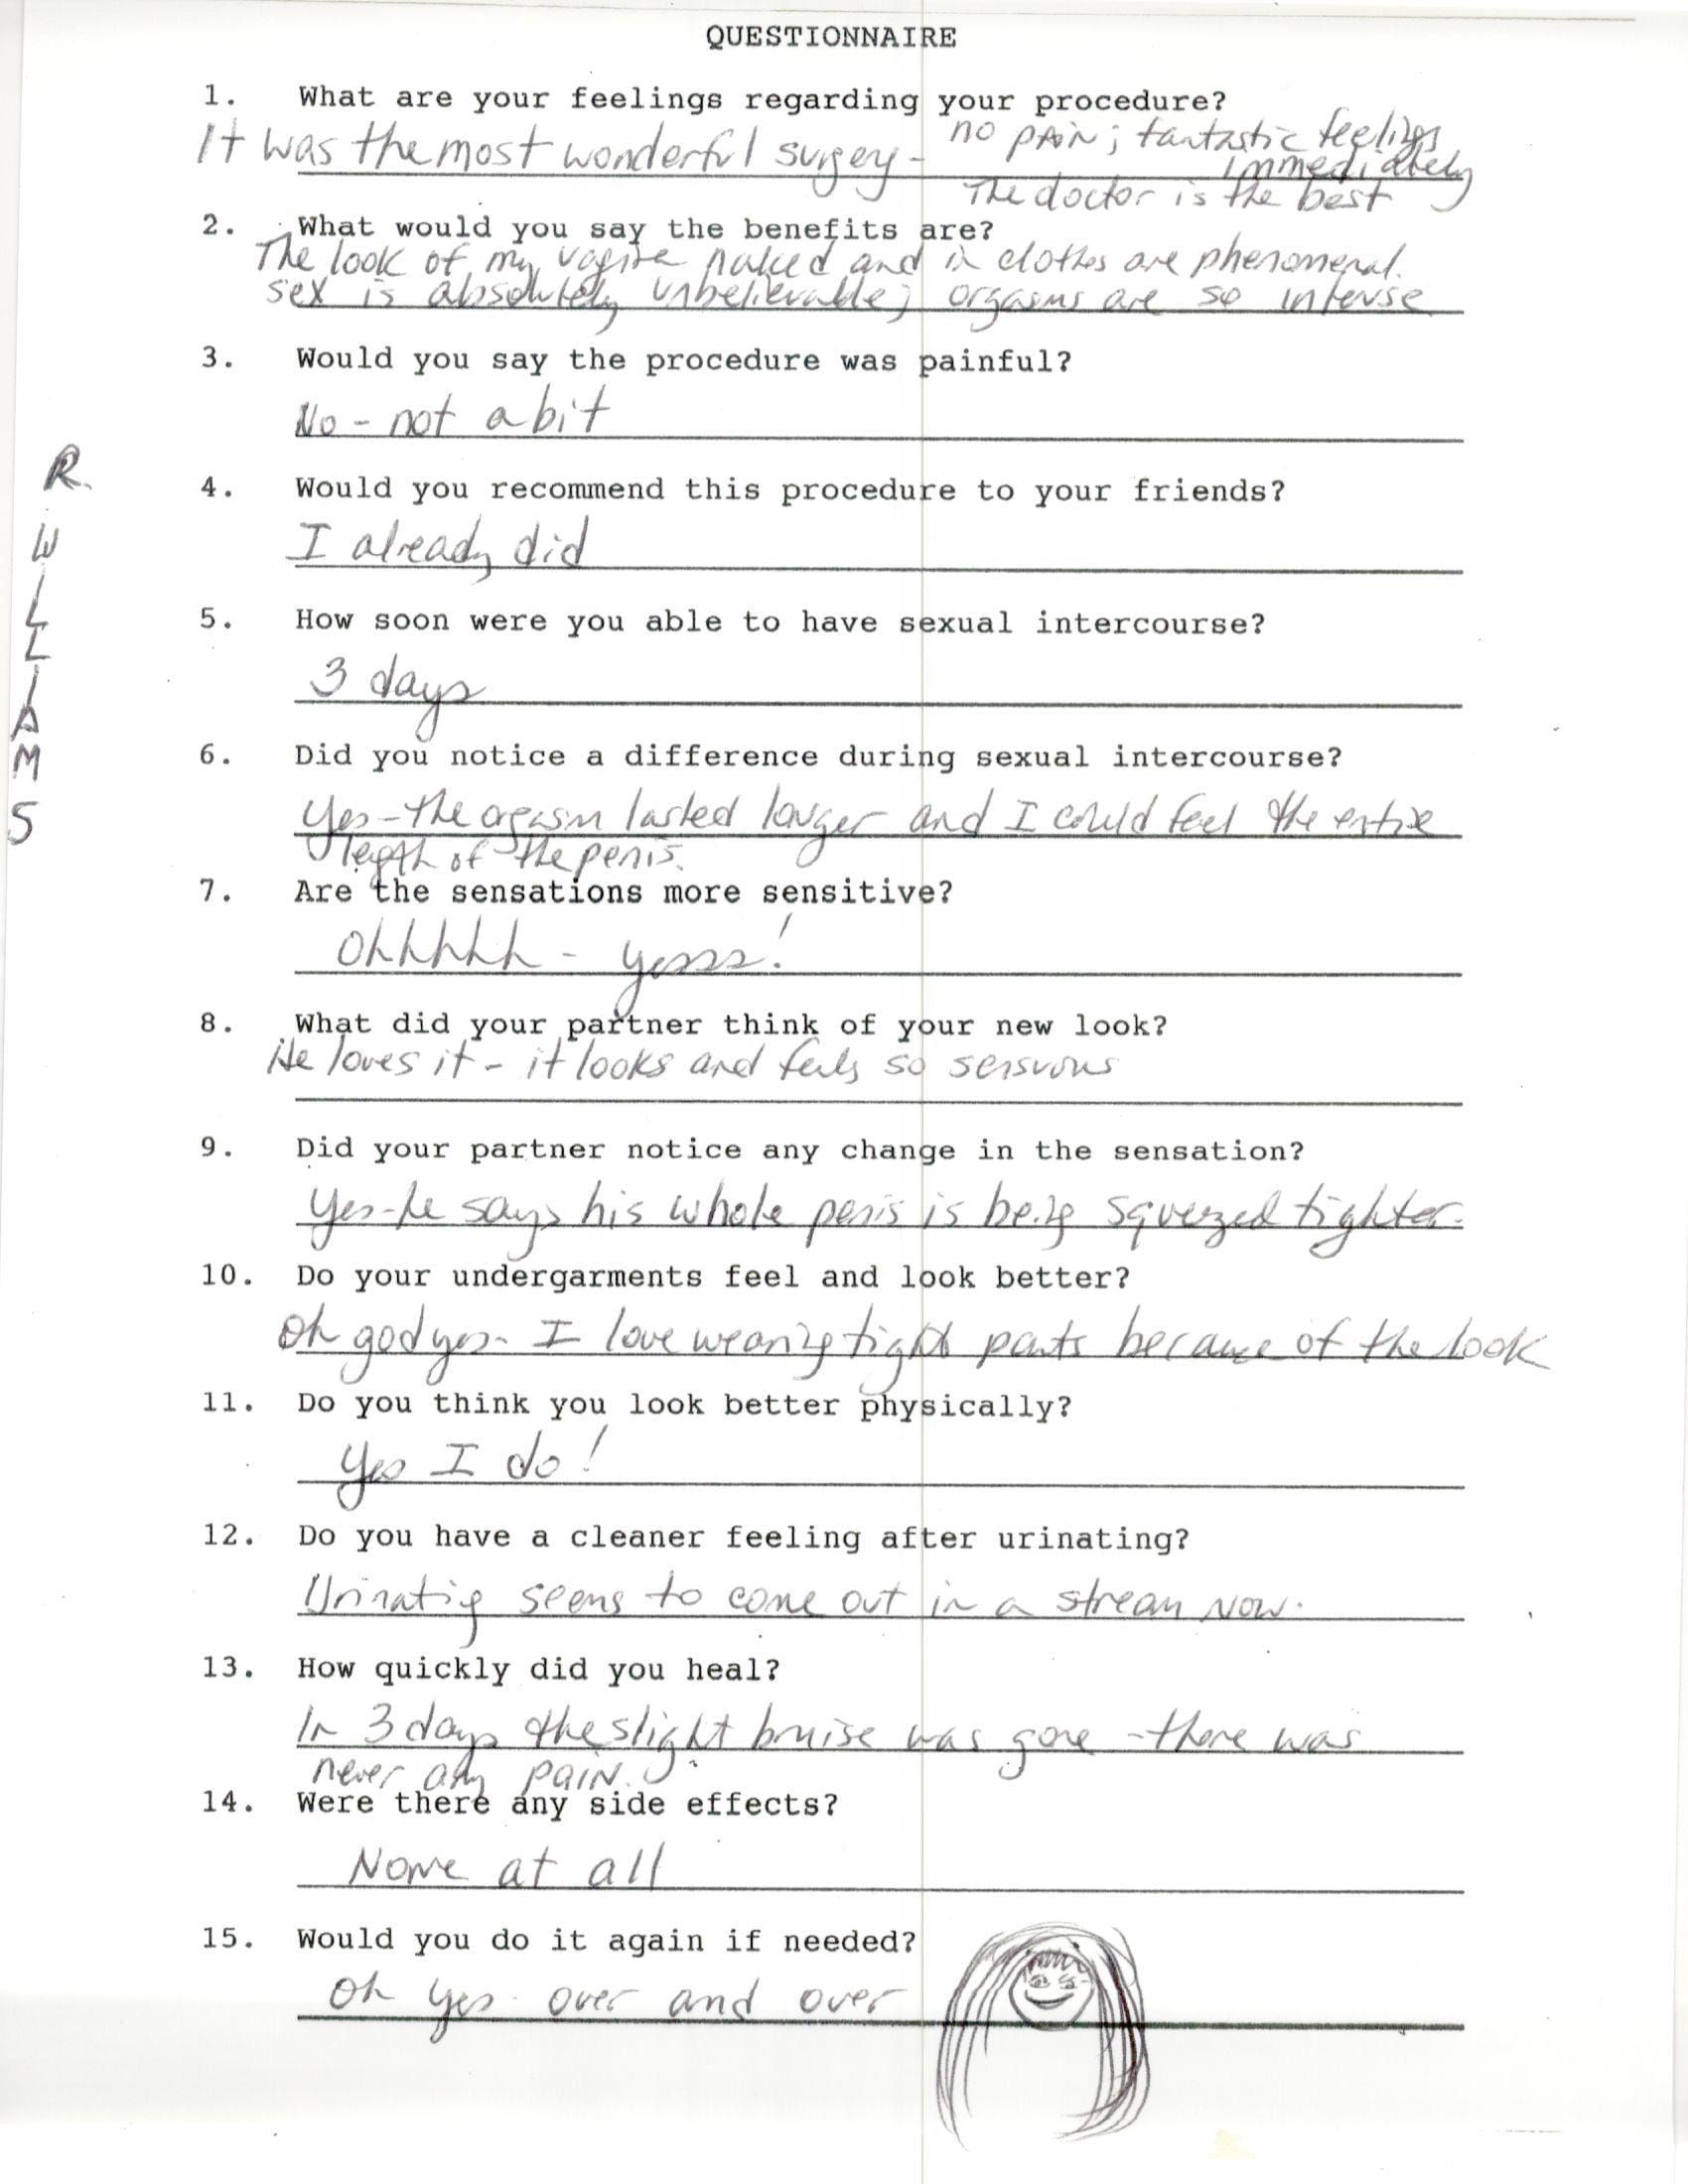 QUESTIONNAIRE
1. What are your feelings regarding your procedure?
It was the most wonderful surgey - no pAiN; fantastic feelings
immediately
The doctor is the best
2. What would you say the benefits are?
The look of my vagina naked and in clothes are phenomenal.
sex is absolutely unbelievable; orgasms are so intense
3. Would you say the procedure was painful?
No - not a bit
4. Would you recommend this procedure to your friends?
I already did
5. How soon were you able to have sexual intercourse?
3 days
6. Did you notice a difference during sexual intercourse?
Yes - the orgasm lasted longer and I could feel the entire
length of the penis.
7. Are the sensations more sensitive?
Ohhhhh - yesss!
8. What did your partner think of your new look?
He loves it - it looks and feels so sensuous
9. Did your partner notice any change in the sensation?
Yes - he says his whole penis is being squeezed tighter.
10. Do your undergarments feel and look better?
Oh god yes - I love wearing tight pants because of the look
11. Do you think you look better physically?
Yes I do!
12. Do you have a cleaner feeling after urinating?
Urinatig seems to come out in a stream NOW.
13. How quickly did you heal?
In 3 days the slight bruise was gone - there was
never any pAiN.
14. Were there any side effects?
None at all
15. Would you do it again if needed?
Oh yes - over and over
R. WILLIAMS